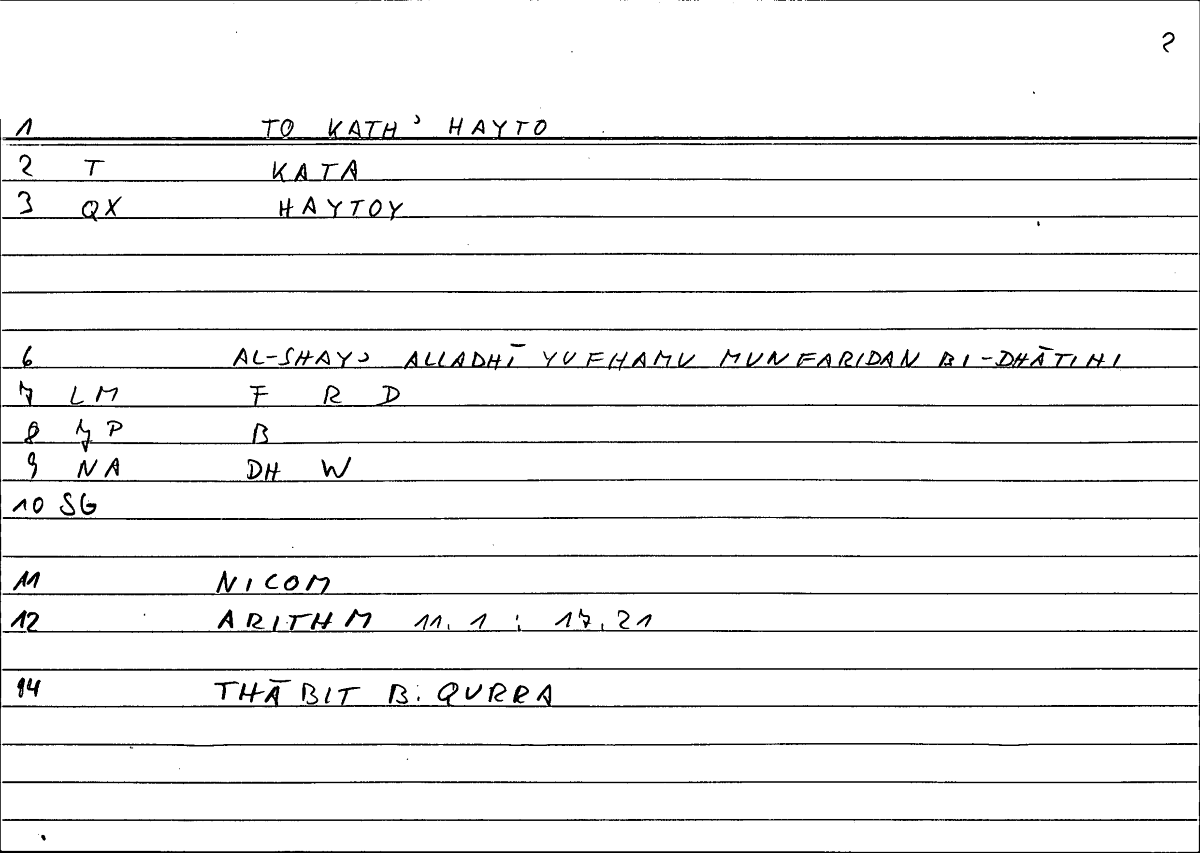 2
1 TO KATH' HAYTO
2 T KATA
3 QX HAYTOY
6 AL-SHAY' ALLADHĪ YUFHAMU MUNFARIDAN BI-DHĀTIHI
7 LM F R D
8 7P B
9 NA DH W
10 SG
11 NICOM
12 ARITHM 11.1 : 17.21
14 THĀBIT B. QURRA